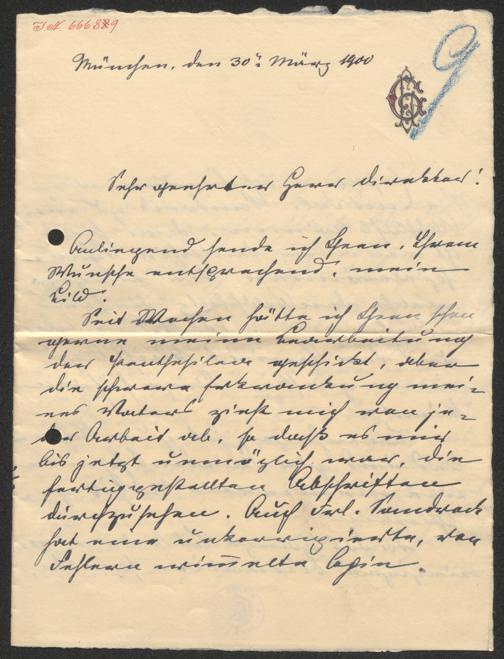 I.N. 666889
München, den 30. März 1900
Sehr geehrter Herr Direktor!
Anliegend sende ich Ihnen, Ihrem
Wunsche entsprechend, mein
Bild.
Seit Wochen hätte ich Ihnen schon
gerne meine Bearbeitung
der Penthesilea geschickt, aber
die schwere Erkrankung mei-
nes Vaters zieht mich von je-
der Arbeit ab, so daß es mir
bis jetzt unmöglich war, die
fertiggestellten Abschriften
durchzusehen. Auch Frl. Sandrock
hat eine unkorrigierte, von
Fehlern wimmelte